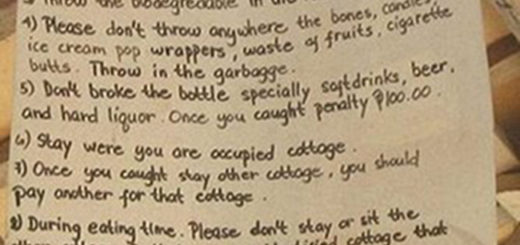 Throw the biodegreadable in the
4) Please don't throw anywhere the bones, candies,
ice cream pop wrappers, waste of fruits, cigarette
butts. Throw in the garbagge.
5) Don't broke the bottle specially softdrinks, beer,
and hard liquor. Once you caught penalty ₱100.00.
6) Stay were you are occupied cottage.
7) Once you caught stay other cottage, you should
pay another for that cottage.
8) During eating time. Please don't stay or sit the
cottage that